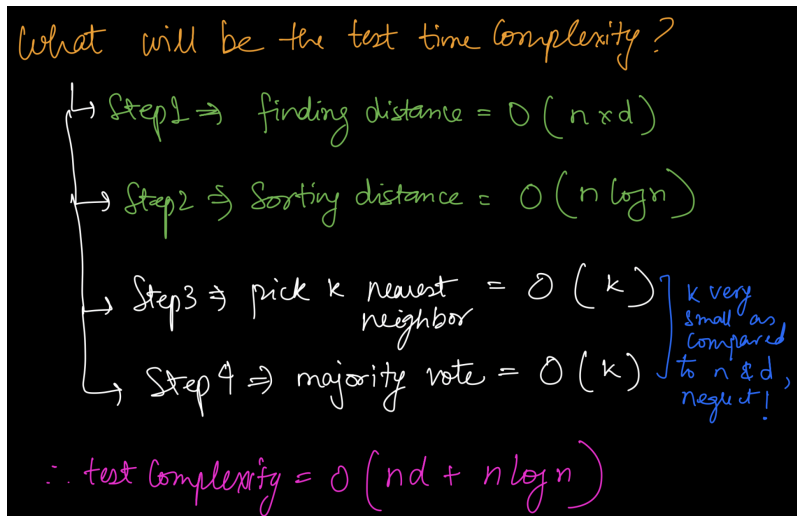 What will be the test time Complexity?
Step1 ⇒ finding distance = O(n×d)
Step2 ⇒ Sorting distance = O(n log n)
Step3 ⇒ pick k nearest neighbor = O(k)
Step4 ⇒ majority vote = O(k)
k very
small as
compared
to n & d,
neglect!
∴ test Complexity = O(nd + n log n)